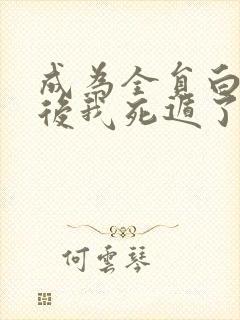 成為全員白
後我死遁了
何雲琴